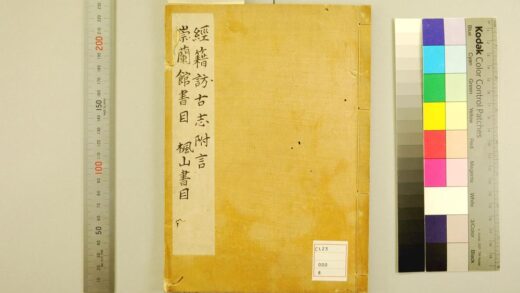 經籍訪古志附言
崇蘭館書目 楓山書目
C123
000
8
200
150
100
50
Kodak
Color Control Patches
Blue
Cyan
Green
Yellow
Red
Magenta
White
3/Color
Black